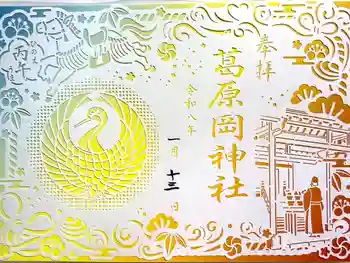 奉拝
葛原岡神社
令和八年
一月十三日
丙午